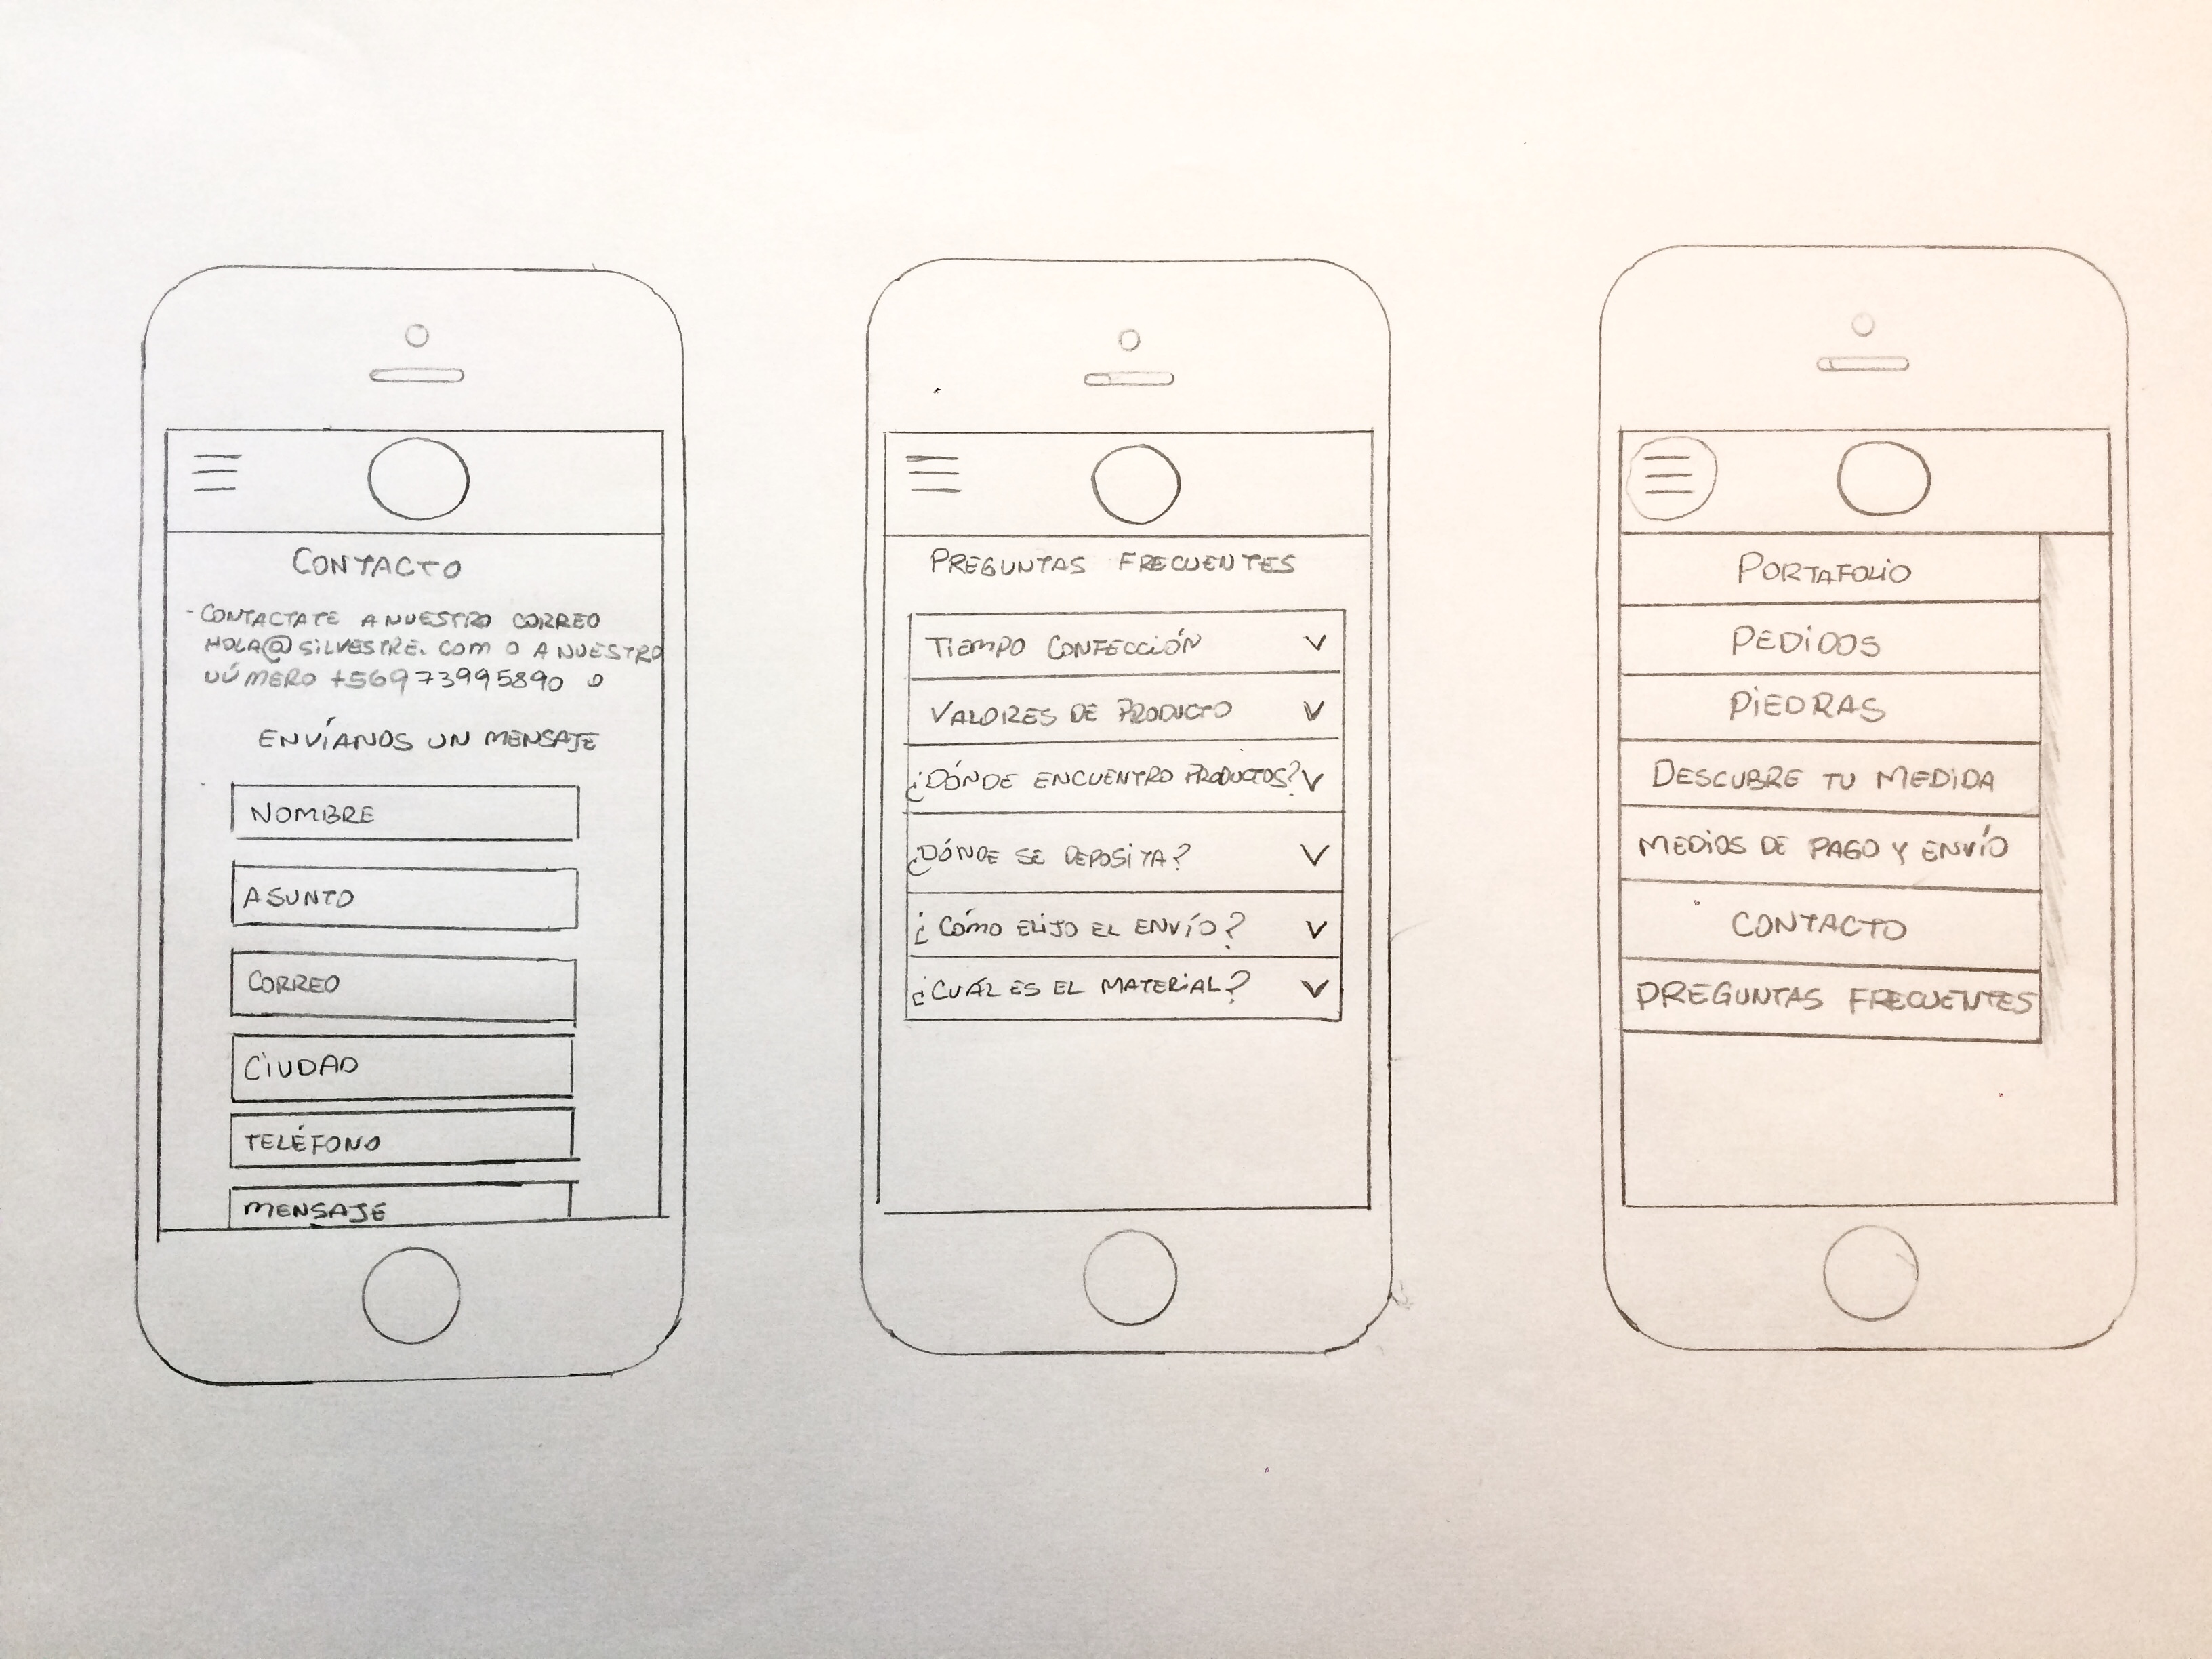 CONTACTO
- CONTACTATE A NUESTRO CORREO
HOLA@SILVESTRE.COM O A NUESTRO
NÚMERO +56973995890 O
ENVÍANOS UN MENSAJE
NOMBRE
ASUNTO
CORREO
CIUDAD
TELÉFONO
MENSAJE
PREGUNTAS FRECUENTES
TIEMPO CONFECCIÓN
VALORES DE PRODUCTO
¿DÓNDE ENCUENTRO PRODUCTOS?
¿DÓNDE SE DEPOSITA?
¿CÓMO ELIJO EL ENVÍO?
¿CUÁL ES EL MATERIAL?
PORTAFOLIO
PEDIDOS
PIEDRAS
DESCUBRE TU MEDIDA
MEDIOS DE PAGO Y ENVÍO
CONTACTO
PREGUNTAS FRECUENTES